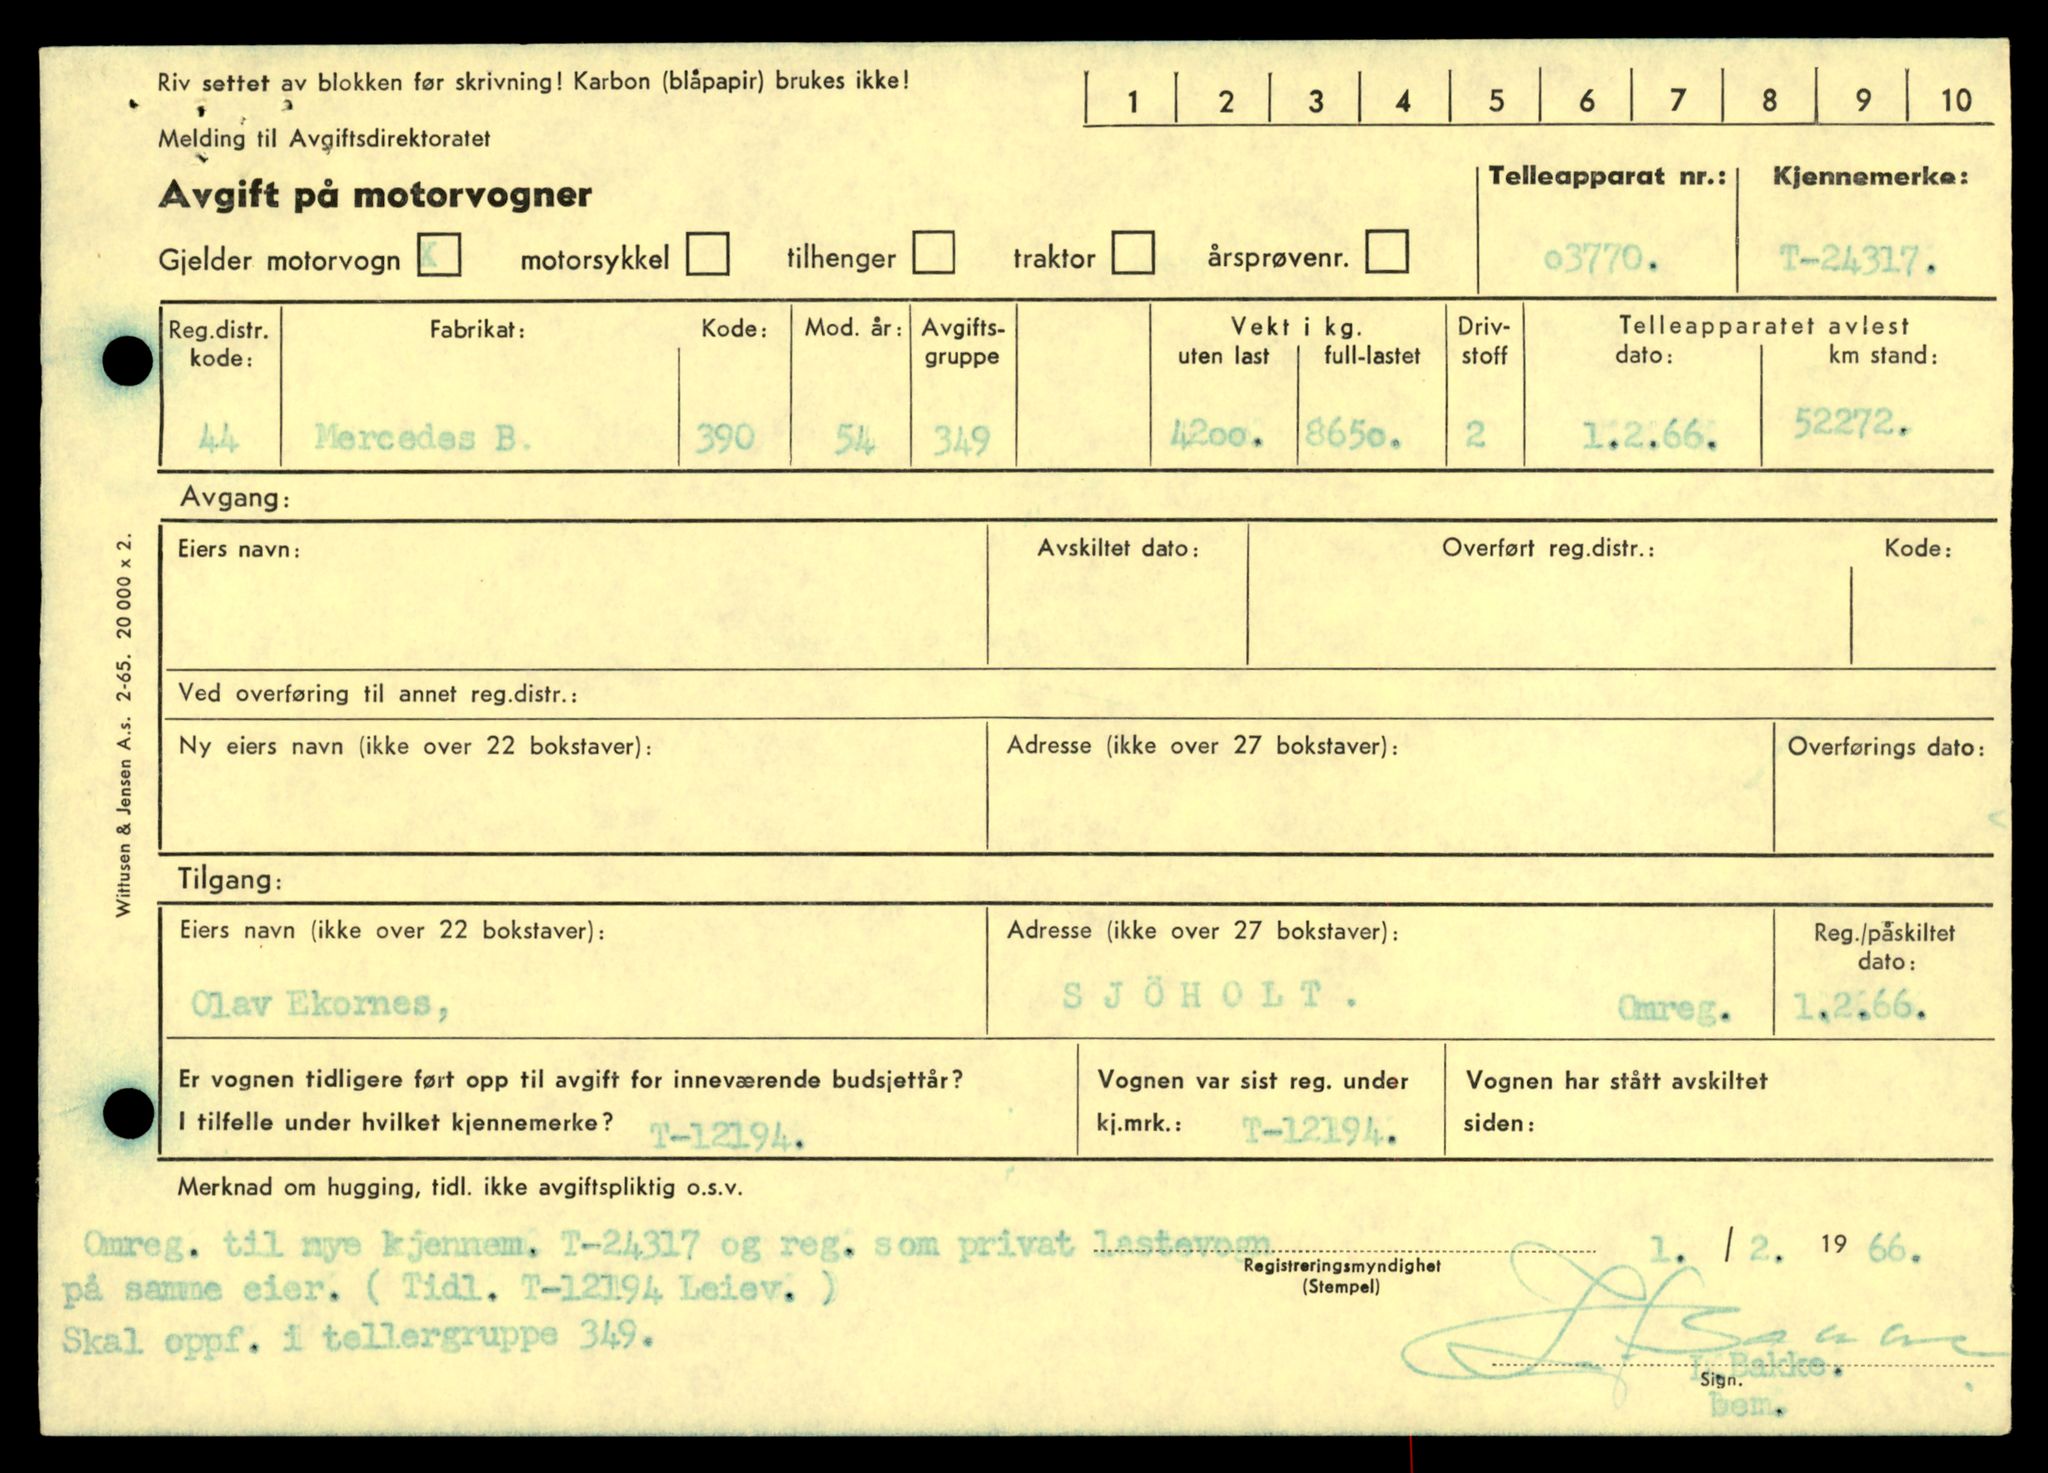 Riv settet av blokken før skrivning! Karbon (blåpapir) brukes ikke!
1 2 3 4 5 6 7 8 9 10
Melding til Avgiftsdirektoratet
Avgift på motorvogner
Telleapparat nr.: Kjennemerke:
Gjelder motorvogn X motorsykkel tilhenger traktor årsprøvenr.
o3770. T-24317.
Reg.distr. kode: Fabrikat: Kode: Mod. år: Avgifts-gruppe Vekt i kg. uten last full-lastet Driv-stoff Telleapparatet avlest dato: km stand:
44 Mercedes B. 390 54 349 42oo. 865o. 2 1.2.66. 52272.
Avgang:
Eiers navn: Avskiltet dato: Overført reg.distr.: Kode:
Ved overføring til annet reg.distr.:
Ny eiers navn (ikke over 22 bokstaver): Adresse (ikke over 27 bokstaver): Overførings dato:
Tilgang:
Eiers navn (ikke over 22 bokstaver): Adresse (ikke over 27 bokstaver): Reg./påskiltet dato:
Olav Ekornes, SJÖHOLT. Omreg. 1.2.66.
Er vognen tidligere ført opp til avgift for inneværende budsjettår?
I tilfelle under hvilket kjennemerke? T-12194.
Vognen var sist reg. under
kj.mrk.: T-12194.
Vognen har stått avskiltet
siden:
Merknad om hugging, tidl. ikke avgiftspliktig o.s.v.
Omreg. til nye kjennem. T-24317 og reg. som privat lastevogn
på samme eier. ( Tidl. T-12194 Leiev. )
Skal oppf. i tellergruppe 349.
Registreringsmyndighet
(Stempel)
1. / 2. 19 66.
L.Bakke.
Sign.
bem.
Wittusen & Jensen A.s. 2-65. 20 000 x 2.